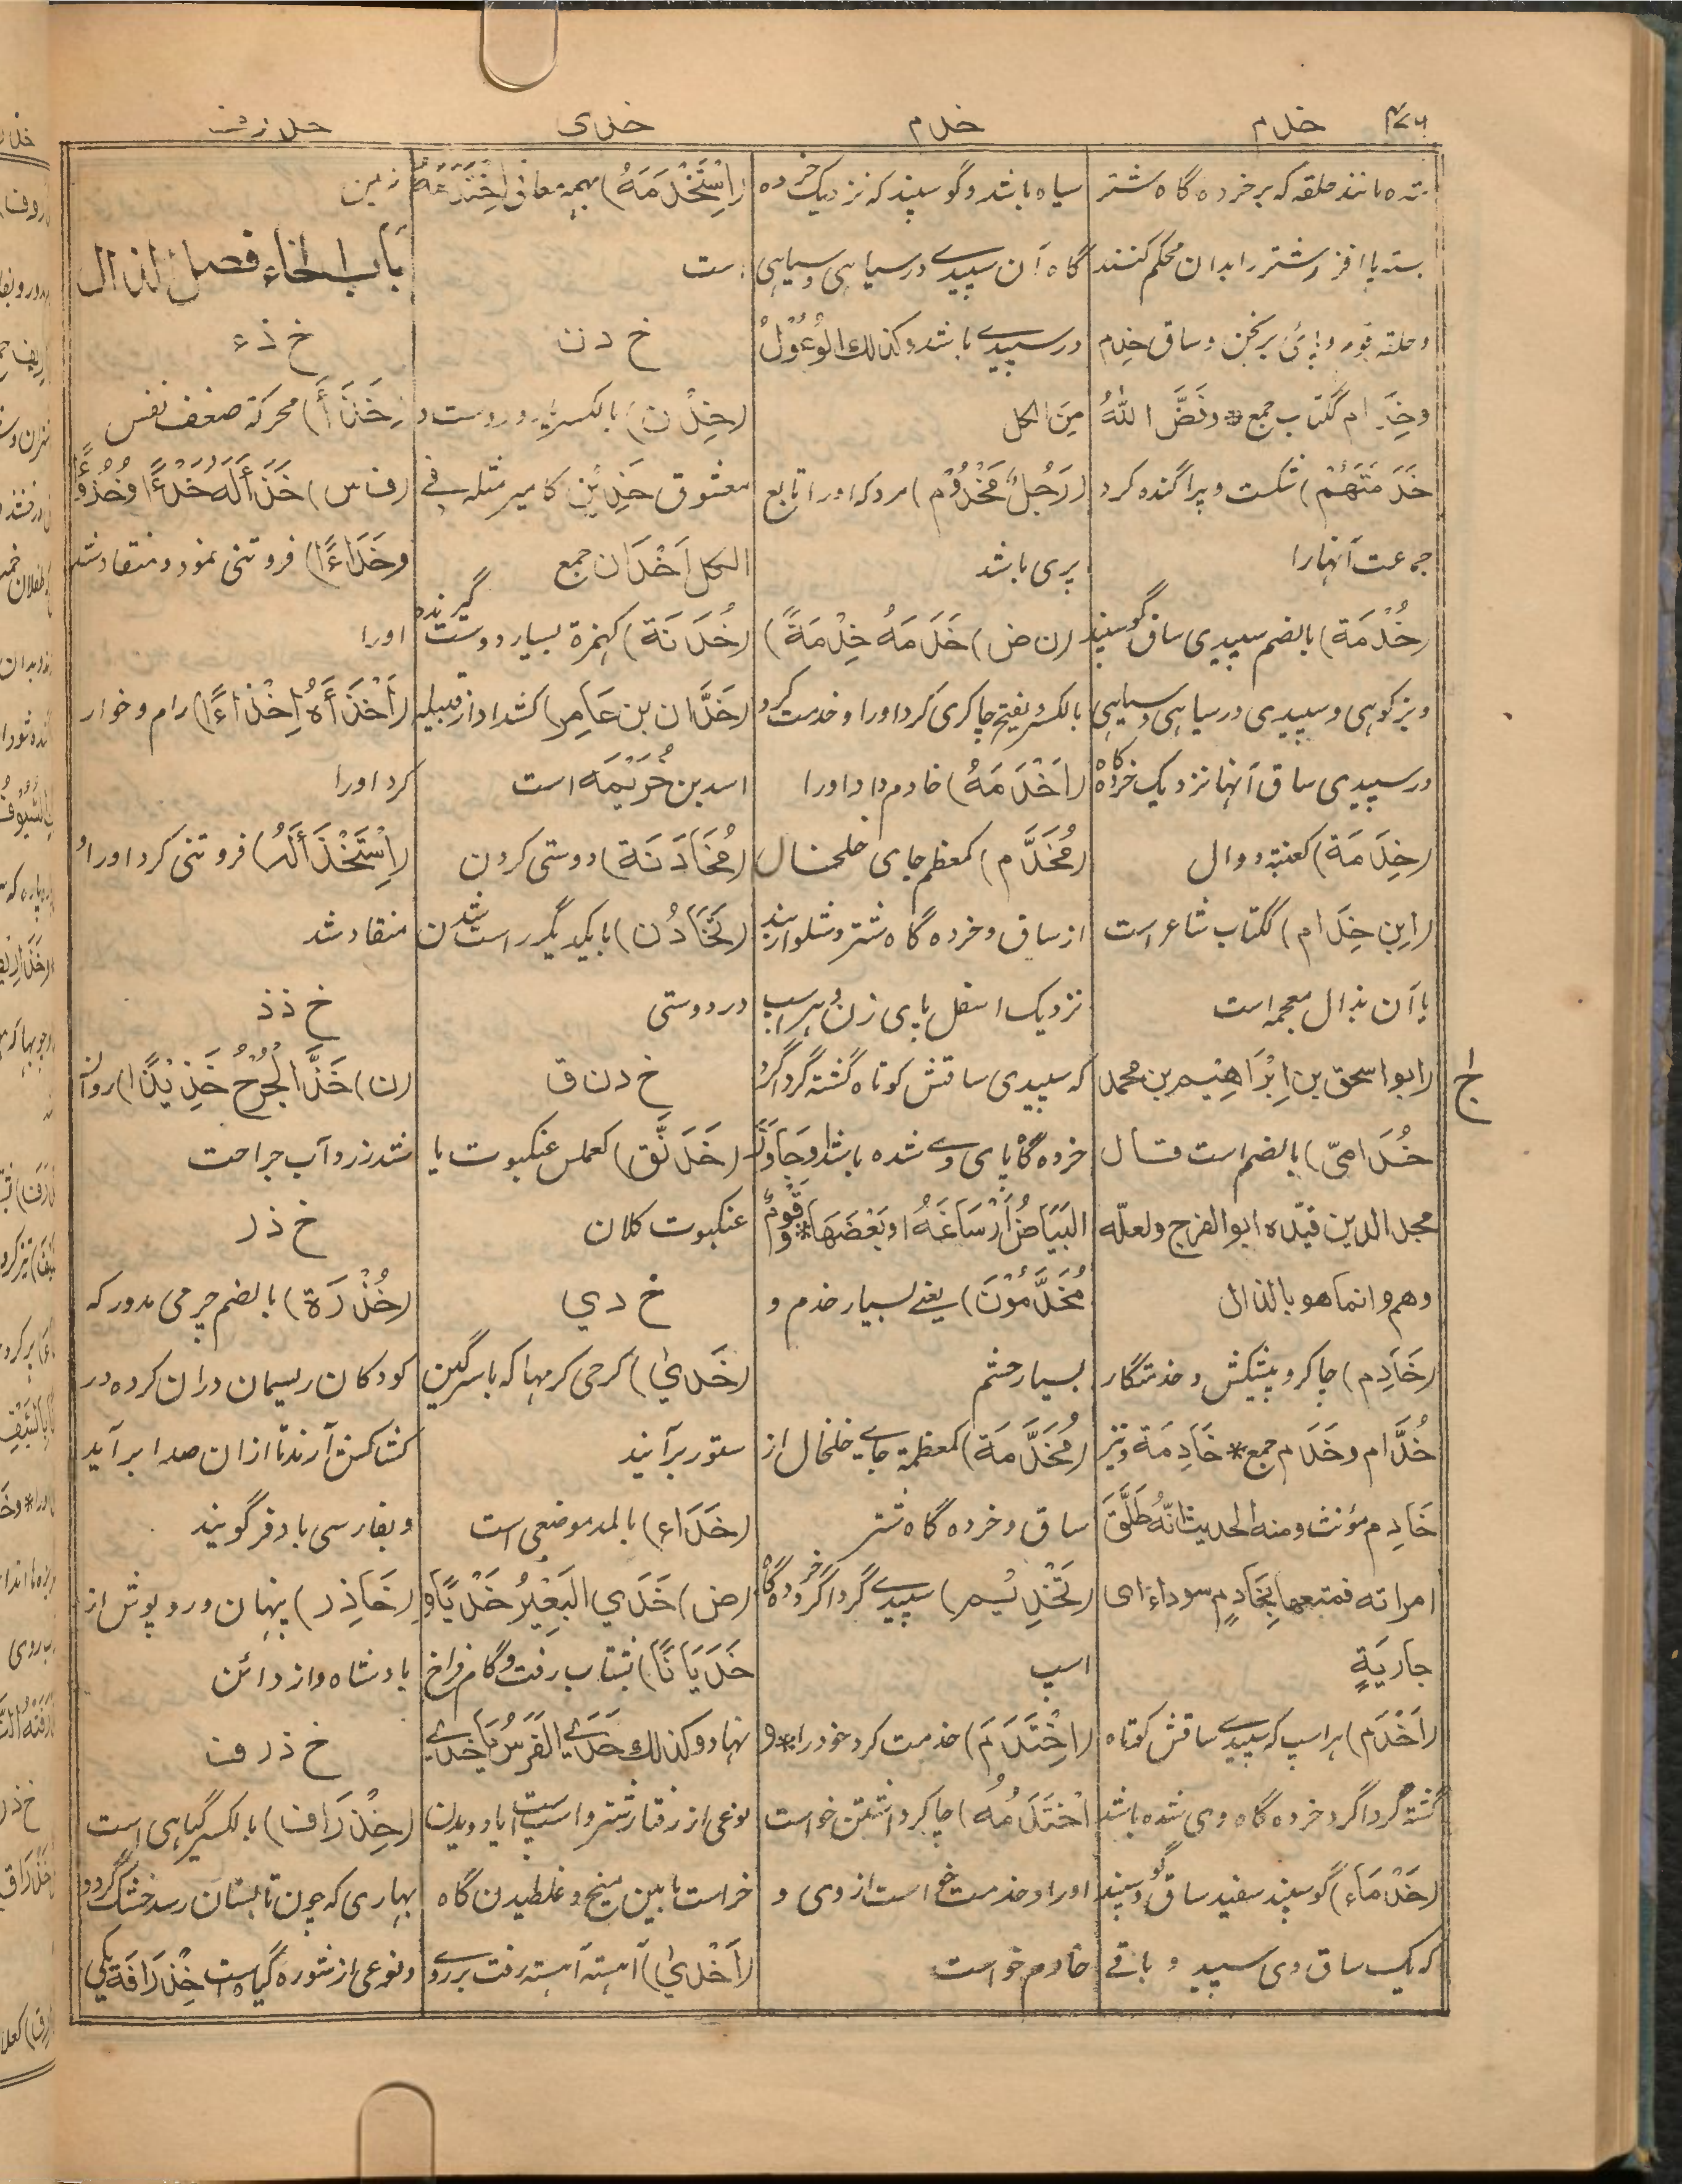 خدم
خدم
خدى
خذرف
تہ ہ مانند حلقہ کہ بر خردہ گاہ شتر
بستہ پا افزار شتر را بدان محکم کنند
و حلقۂ قوم و پائ برنجن و ساق خِدَم
وخِدَام ککتاب جمع * وفَضَّ اللهُ
خَدَمَتَهُمْ) شکست و پراگندہ کرد
جمعت آنہارا
(خُدْمَة) بالضم سپیدی ساق گوسپند
و بز کوہی و سپیدی در سیاہی و سیاہی
در سپیدی ساق آنہا نزدیک خردہ گاہ
(خِدَمَة) کعنبۃ دوال
(ابن خِدَام) ککتاب شاعر است
یا آن بذال معجمہ است
(ابو اسحق بن اِبْرَاهِيْم بن محمد
خُدَامِيّ) بالضم است قال
مجد الدين قيّده ابو الفرج ولعلّه
وهم وانما هو بالذال
(خَادِم) چاکر و پیشکش و خدمتگار
خُدَّام وخَدَم جمع * خَادِمَة ونیز
خَادِم مؤنث ومنه الحديث انّهُ طَلَّقَ
امراته فمتعها بِخَادِمٍ سوداء ای
جارِيَةٍ
(اَخْدَم) ہر اسپ کہ سپیدے ساقش کوتاہ
گشتہ گرداگرد خردہ گاہ وی شدہ باشد
(خَدْمَاء) گوسپند سفید ساق و گوسپند
کہ یک ساق وی سپید و باقے
سیاہ باشد و گوسپند کہ نزدیک خردہ
گاہ آن سپیدے در سیاہی و سیاہی
در سپیدے باشد وكذلك الوُعُوْلُ
مِنَ الكل
(رَجُلٌ مَخْدُوْم) مردکہ اورا تابع
پری باشد
(ن ض) خَدَمَهُ خِدْمَةً)
بالکسر و یفتح چاکری کرد اورا و خدمت کرد
(اَخْدَمَهُ) خادم داد اورا
(مُخَدَّم) کمعظم جای خلخال
از ساق و خردہ گاہ شتر و شلوار بند
نزدیک اسفل پای زن و ہر اسپ
کہ سپیدی ساقش کوتاہ گشتہ گرداگرد
خردہ گاہ پای وے شدہ باشد او جَاوَزَ
البَيَاضُ اَرْسَاغَهُ او بَعْضَهَا * وقَوْمٌ
مُخَدَّمُوْنَ) یعنے بسیار خدم و
بسیار حشم
(مُخَدَّمَة) کمعظمۃ جاے خلخال از
ساق و خردہ گاہ شتر
(تَخْدِيْم) سپیدے گرداگرد خردہ گاہ
اسپ
(اِخْتَدَمَ) خدمت کرد خود را * و
اخْتَدَمَهُ) چاکر داشتن خواست
اورا و خدمت خواست از وی و
خادم خواست
(اِسْتَخْدَمَهُ) بہمہ معانی اِخْتَدَمَهُ
است
خ دن
(خِدْن) بالکسر یار و دوست و
معشوق خَدِيْن کامیر مثلہ فے
الکل اَخْدَان جمع
(خُدَنَة) کہمزۃ بسیار دوست گیرندہ
(خَدَّان بن عَامِر) کشداد از قبیلہ
اسد بن خُزَيْمَه است
(مُخَادَنَة) دوستی کردن
(تَخَادُن) بایکدیگر راست شدن
در دوستی
خ دن ق
(خَدَنَّق) کعملس عنکبوت یا
عنکبوت کلان
خ دي
(خَدَيٰ) کرحی کرمہا کہ با سرگین
ستور برآیند
(خَدَاء) بالمد موضعی است
(ض) خَدَي البَعِيْرُ خَدْيًا و
خَدَيَانًا) شتاب رفت و گام فراخ
نہاد وكذلك خَدَے الفَرَسُ یا خَدَے
نوعی از رفتار شتر و اسپ است یا دویدن
خر است مابین میخ و غلطیدن گاہ
(اَخْدَيٰ) آہستہ آہستہ رفت بر روے
زمین
باب الخاء فصل الذال
خ ذء
(خَذَأ) محرکۃ ضعف نفس
(ف س) خَذَأ لَهُ خَذْءًا وخُذُوْءًا
وخَذَاءًا) فروتنی نمود و منقاد شد
اورا
(اَخْذَأَهُ اِخْذَاءًا) رام و خوار
کرد اورا
(اِسْتَخْذَأَ لَهُ) فروتنی کرد اورا و
منقاد شد
خ ذذ
(ن) خَذَّ الجُرْحُ خَذِيْذًا) روان
شد زرد آب جراحت
خ ذر
(خُذْرَة) بالضم چرمی مدور کہ
کودکان ریسمان دران کردہ در
کشاکش آرند تا ازان صدا برآید
و بفارسی بادفر گویند
(خَاذِر) پنہان و روپوش از
بادشاہ و از دائن
خ ذر ف
(خِذْرَاف) بالکسر گیاہی است
بہاری کہ چون تابستان رسد خشک گردد
و نوعی از شورہ گیاہ است خِذْرَافَة یکی